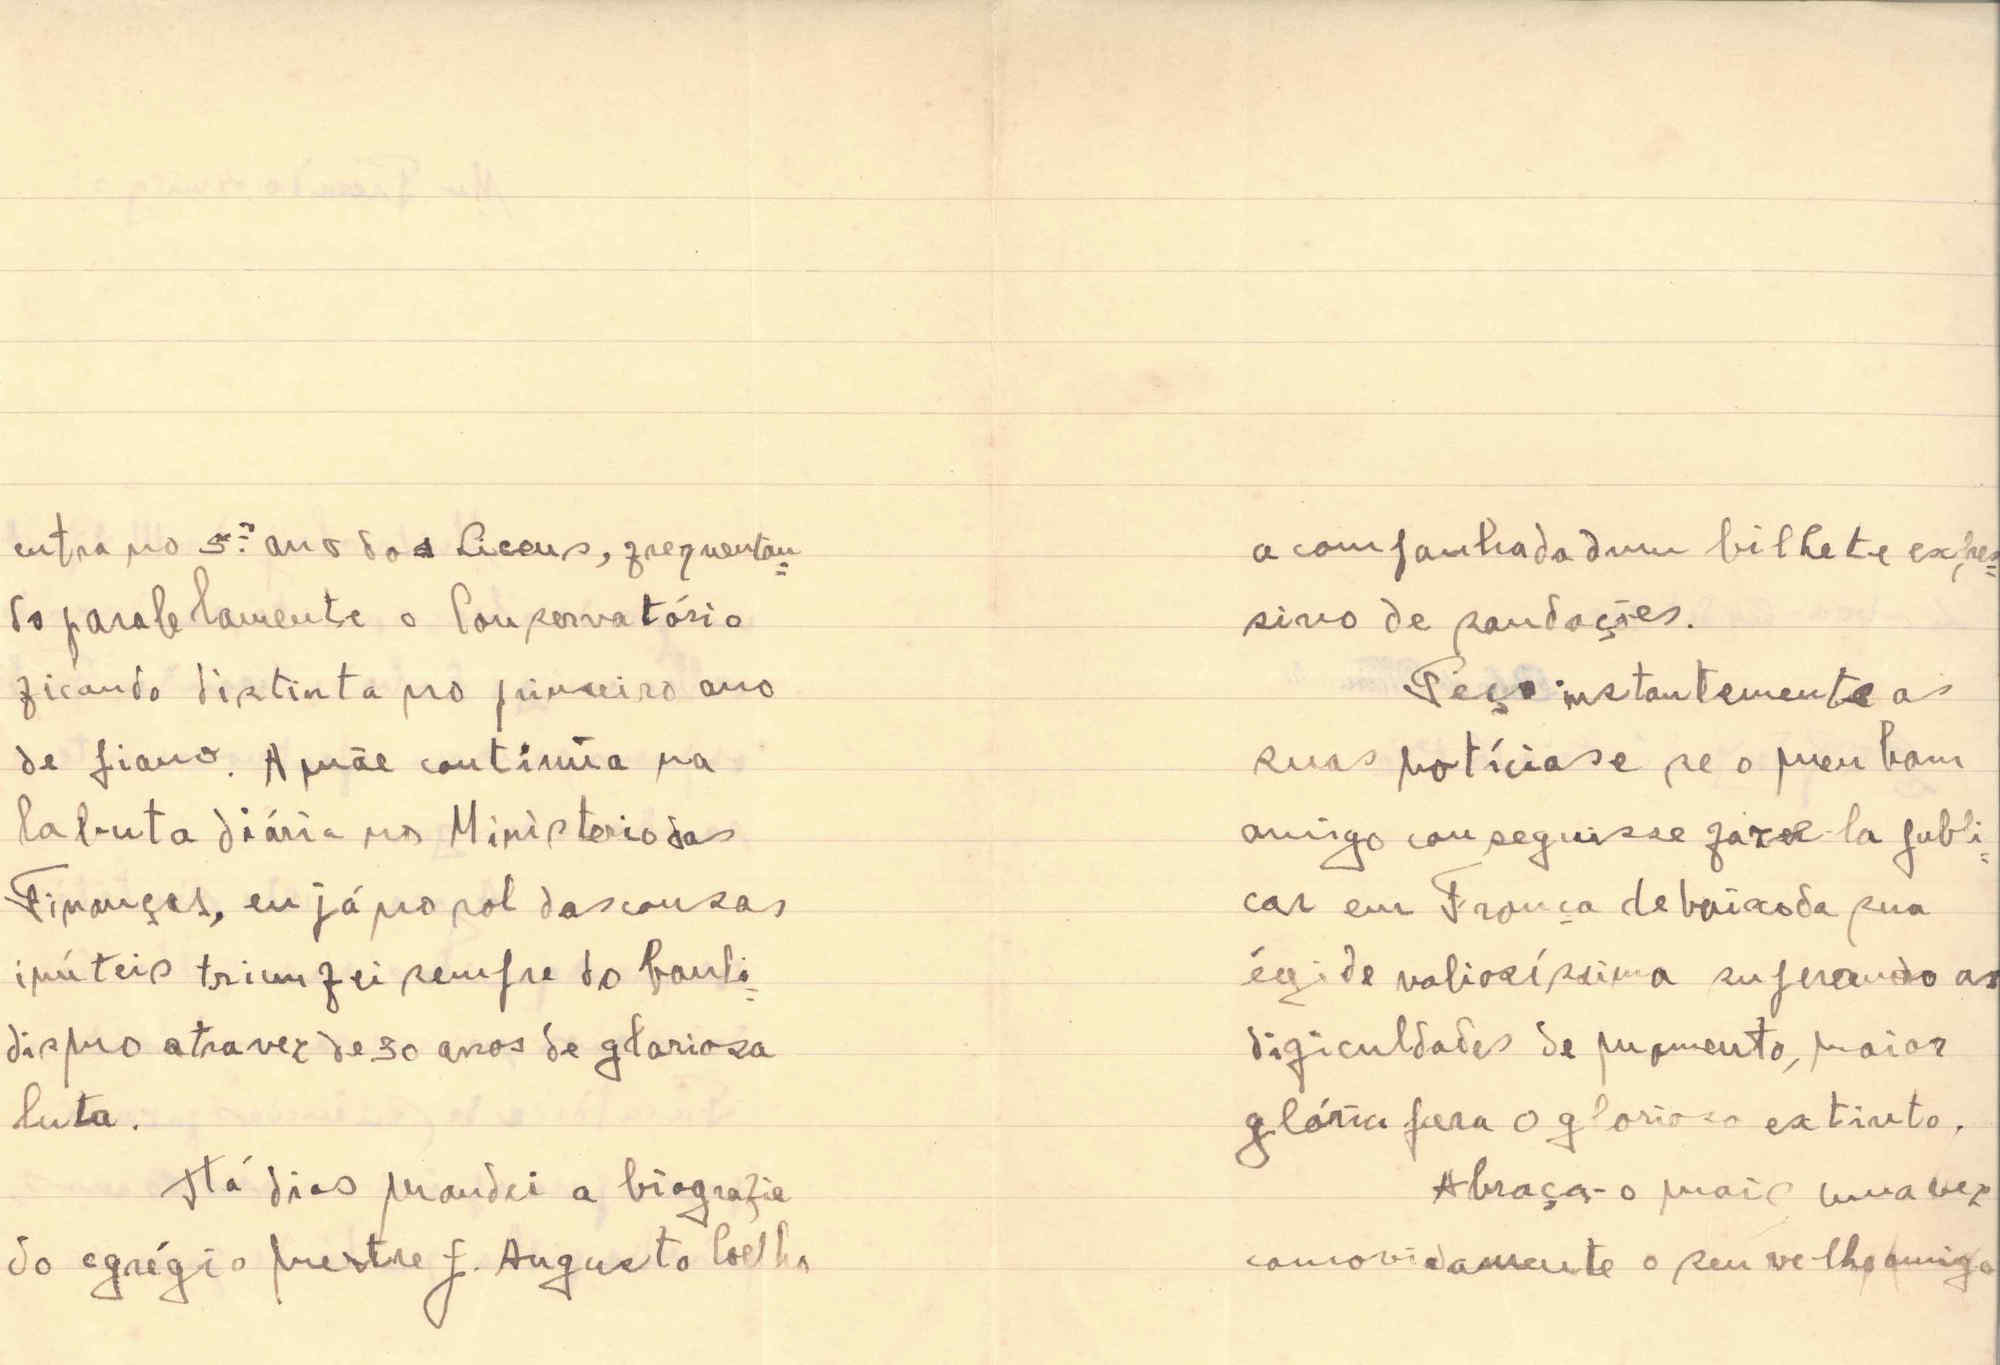 entra no 5.º ano dos Liceus, frequentan=
do paralelamente o Conservatório
ficando distinta no primeiro ano
de piano. A mãe continua na
labuta diária no Ministerio das
Finanças, eu já no rol das cousas
inúteis triumfei sempre do
atravez de 30 anos de gloriosa
luta.
Há dias mandei a biografia
do egrégio mestre F. Augusto Coelho
acompanhada dum bilhete expres=
sivo de saudações.
Peço instantemente as
suas notícias e se o meu bom
amigo conseguisse fazê-la publi=
car em França debaixo da sua
égide valiosíssima superando as
dificuldades de momento, maior
glória para o glorioso extinto.
Abraça-o mais uma vez
comovidamente o seu velho amigo